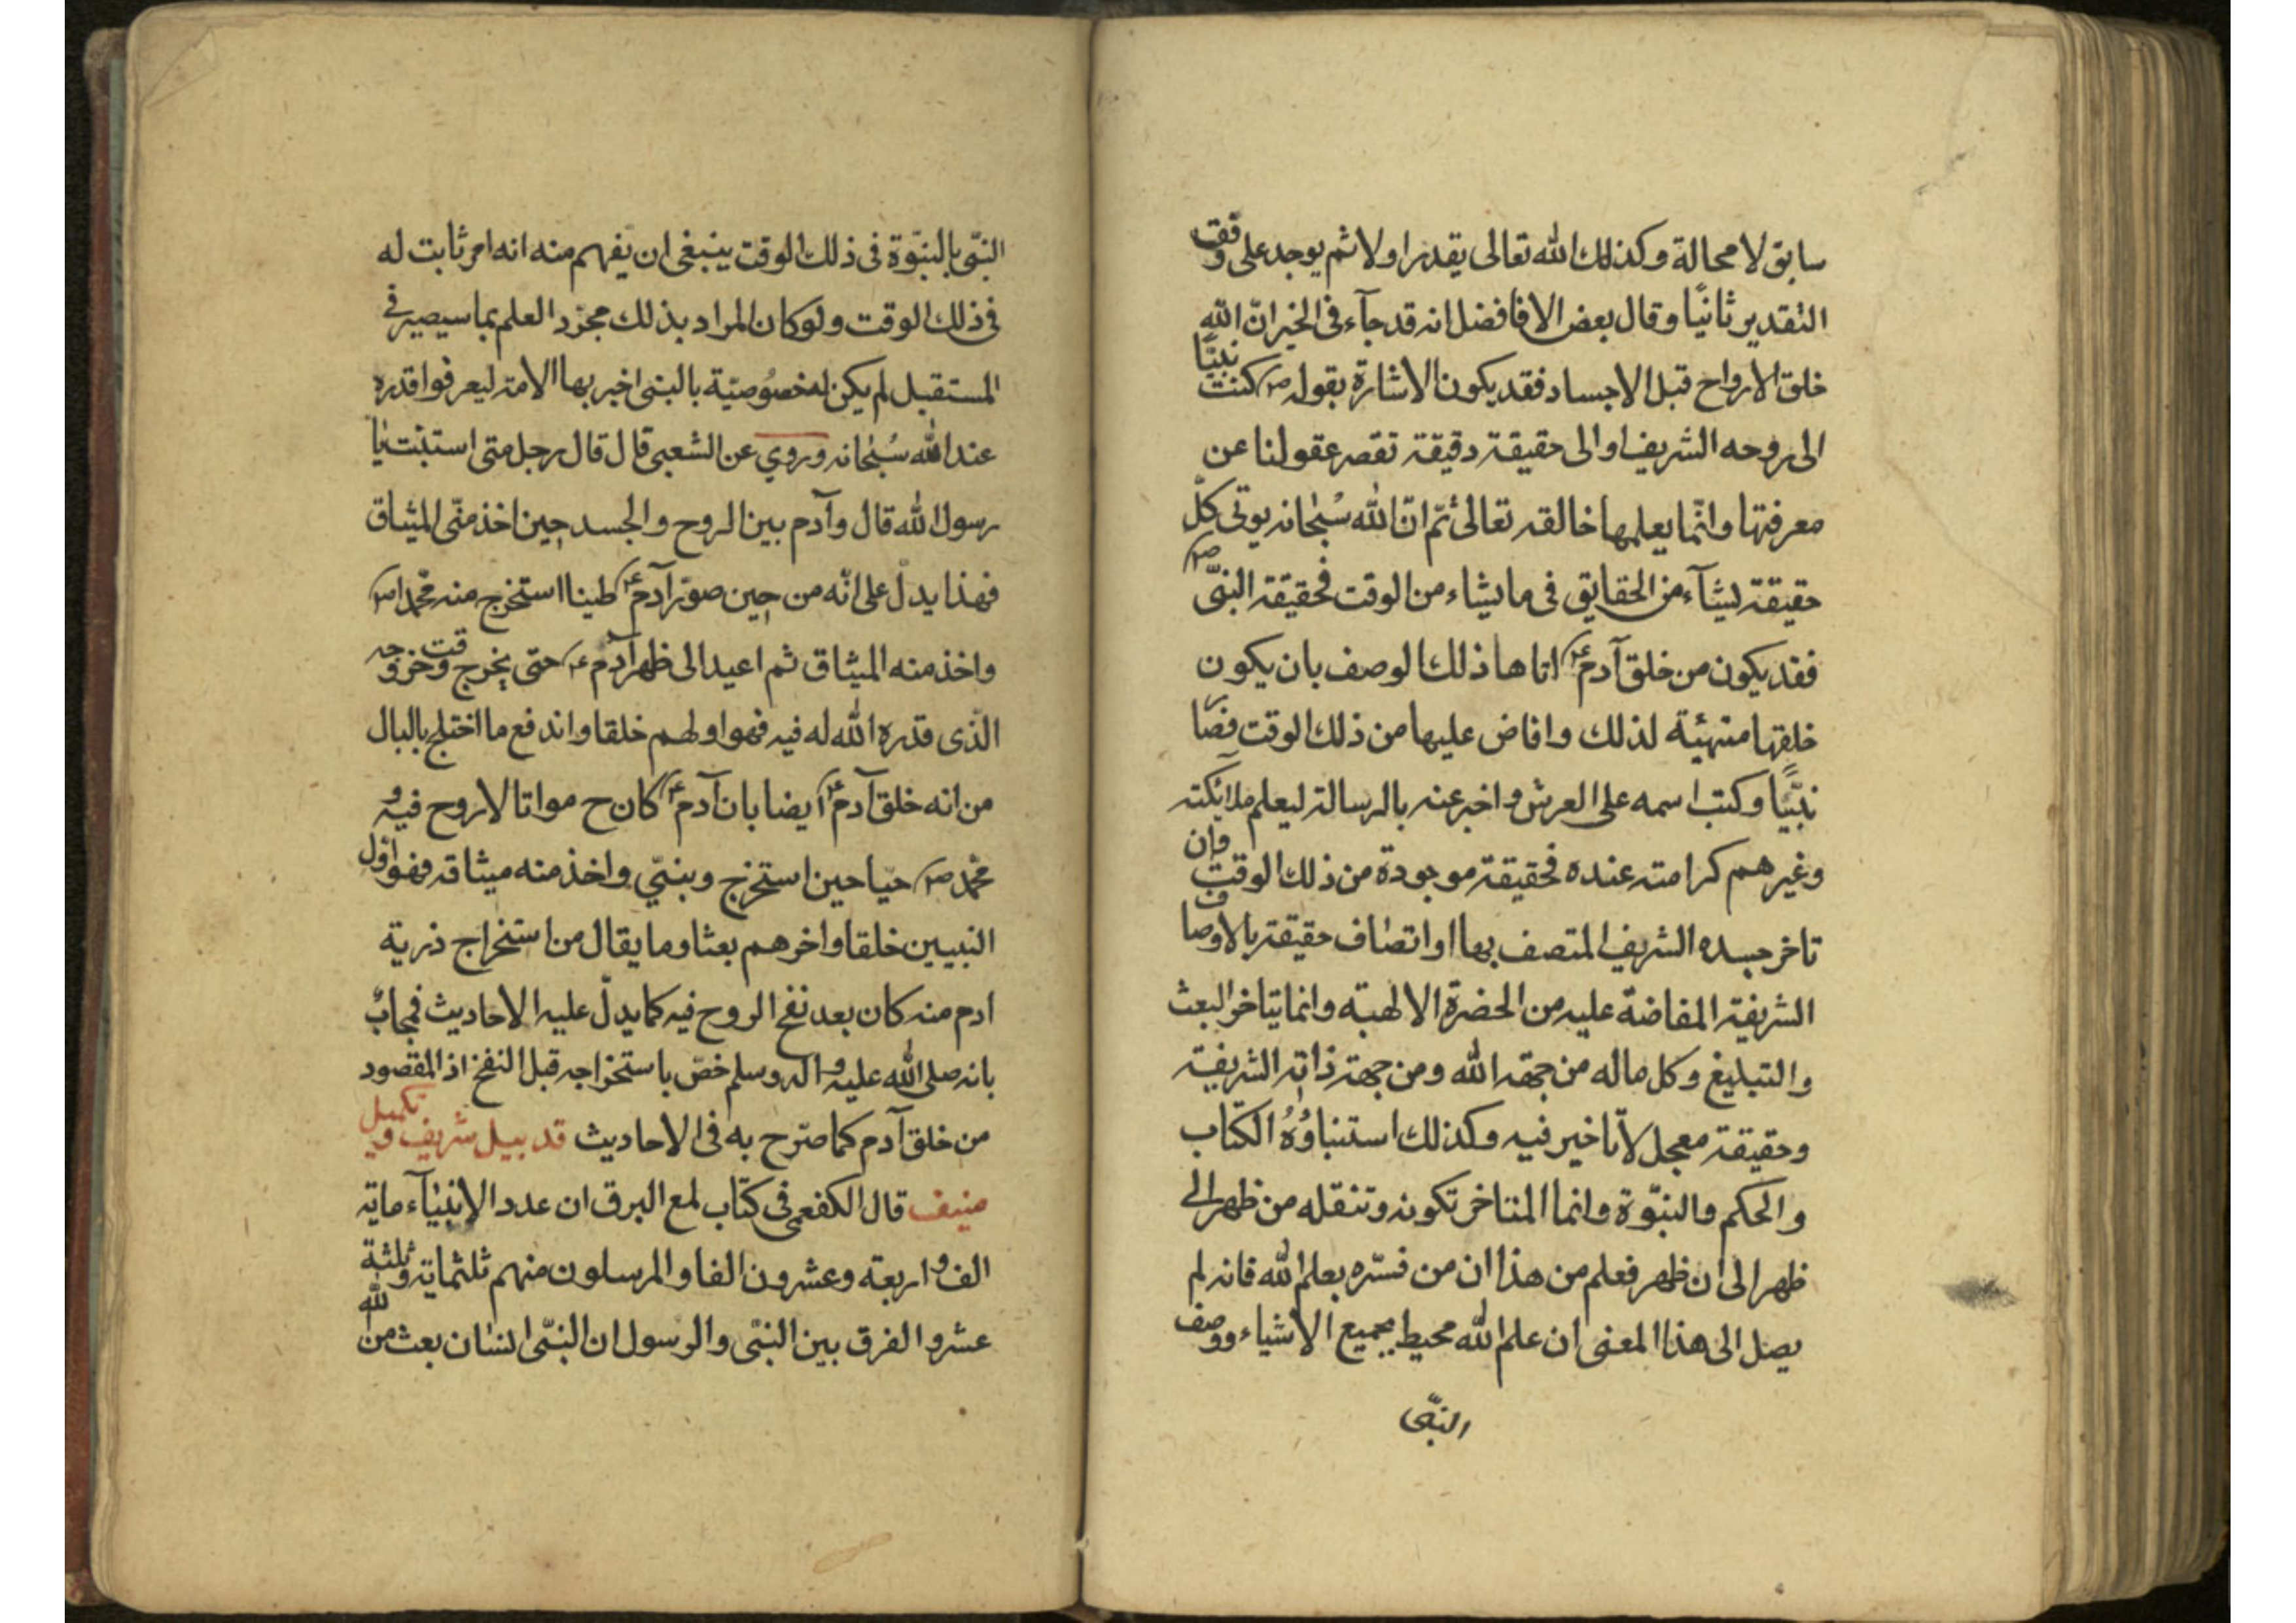 سابق لا محالة وكذلك الله تعالى يقدر اولا ثم يوجد على وفق
التقدير ثانيًا وقال بعض الافافضل انه قد جآء فى الخبر انّ الله
خلق الارواح قبل الاجساد فقد يكون الاشارة بقوله ص كنت نبيًّا
الى روحه الشريف او الى حقيقة دقيقة تقصر عقولنا عن
معرفتها وانّما يعلمها خالقه تعالى ثمّ انّ الله سُبحانه يوتى كلّ
حقيقة يشآء من الحقايق فى ما يشاء من الوقت فحقيقة النبىّ ص
فقد يكون من خلق آدم ع اتاها ذلك الوصف بان يكون
خلقها متهيئة لذلك وافاض عليها من ذلك الوقت فصار
نبيًّا وكتب اسمه على العرش واخبر عنه بالرسالة ليعلم ملائكته
وغيرهم كرامته عنده فحقيقة موجودة من ذلك الوقت وان
تاخر جسده الشريف المتصف بها او اتصاف حقيقة بالاوصاف
الشريفة المفاضة عليه من الحضرة الالهية وانما يتاخر البعث
والتبليغ وكل ماله من جهة الله ومن جهة ذاته الشريفة
وحقيقة معجل لا تاخير فيه وكذلك استنباؤُهُ الكتاب
والحكم والنبّوة وانما المتاخر تكونه وتنقله من ظهر الى
ظهر الى ان ظهر فعلم من هذا ان من فسّره بعلم الله فانه لم
يصل الى هذا المعنى ان علم الله محيط بجميع الاشياء ووصف
النبّى
النبّى بالنبّوة فى ذلك الوقت ينبغى ان يفهم منه انه امر ثابت له
فى ذلك الوقت ولو كان المراد بذلك مجرّد العلم بما سيصير فى
المستقبل لم يكن له خصُوصيّة بالنبى اخبر بها الامة ليعرفوا قدره
عند الله سُبحانه وروي عن الشعبى قال قال رجل متى استنبئت يا
رسول الله قال وآدم بين الروح والجسد حين اخذ منّى الميثاق
فهذا يدلّ على انّه من حين صوّر آدم ع طينا استخرج منه محمّدا ص
واخذ منه الميثاق ثم اعيد الى ظهر آدم ع حتى يخرج وقت خروجه
الّذى قدّره الله له فيه فهو اولهم خلقا واندفع ما اختلج بالبال
من انه خلق آدم ع ايضا بان آدم ع كان ح مواتا لا روح فيه و
محمّد ص حيا حين استخرج وبنبّي واخذ منه ميثاقه فهو اوّل
النبيين خلقا واخرهم بعثا وما يقال من استخراج ذرية
ادم منه كان بعد نفخ الروح فيه كما يدلّ عليه الاحاديث فمجابٌ
بانه صلى الله عليه واله وسلم خصّ باستخراجه قبل النفخ اذ المقصود
من خلق آدم كما صرّح به فى الاحاديث قد بيل شريف و تكميل
منيف قال الكفعمى فى كتاب لمع البرق ان عدد الانبيآء ماية
الف و اربعة وعشرون الفا والمرسلون منهم ثلثماية وثلثة
عشر والفرق بين النبّى والرسول ان النبّى انسان بعث من الله